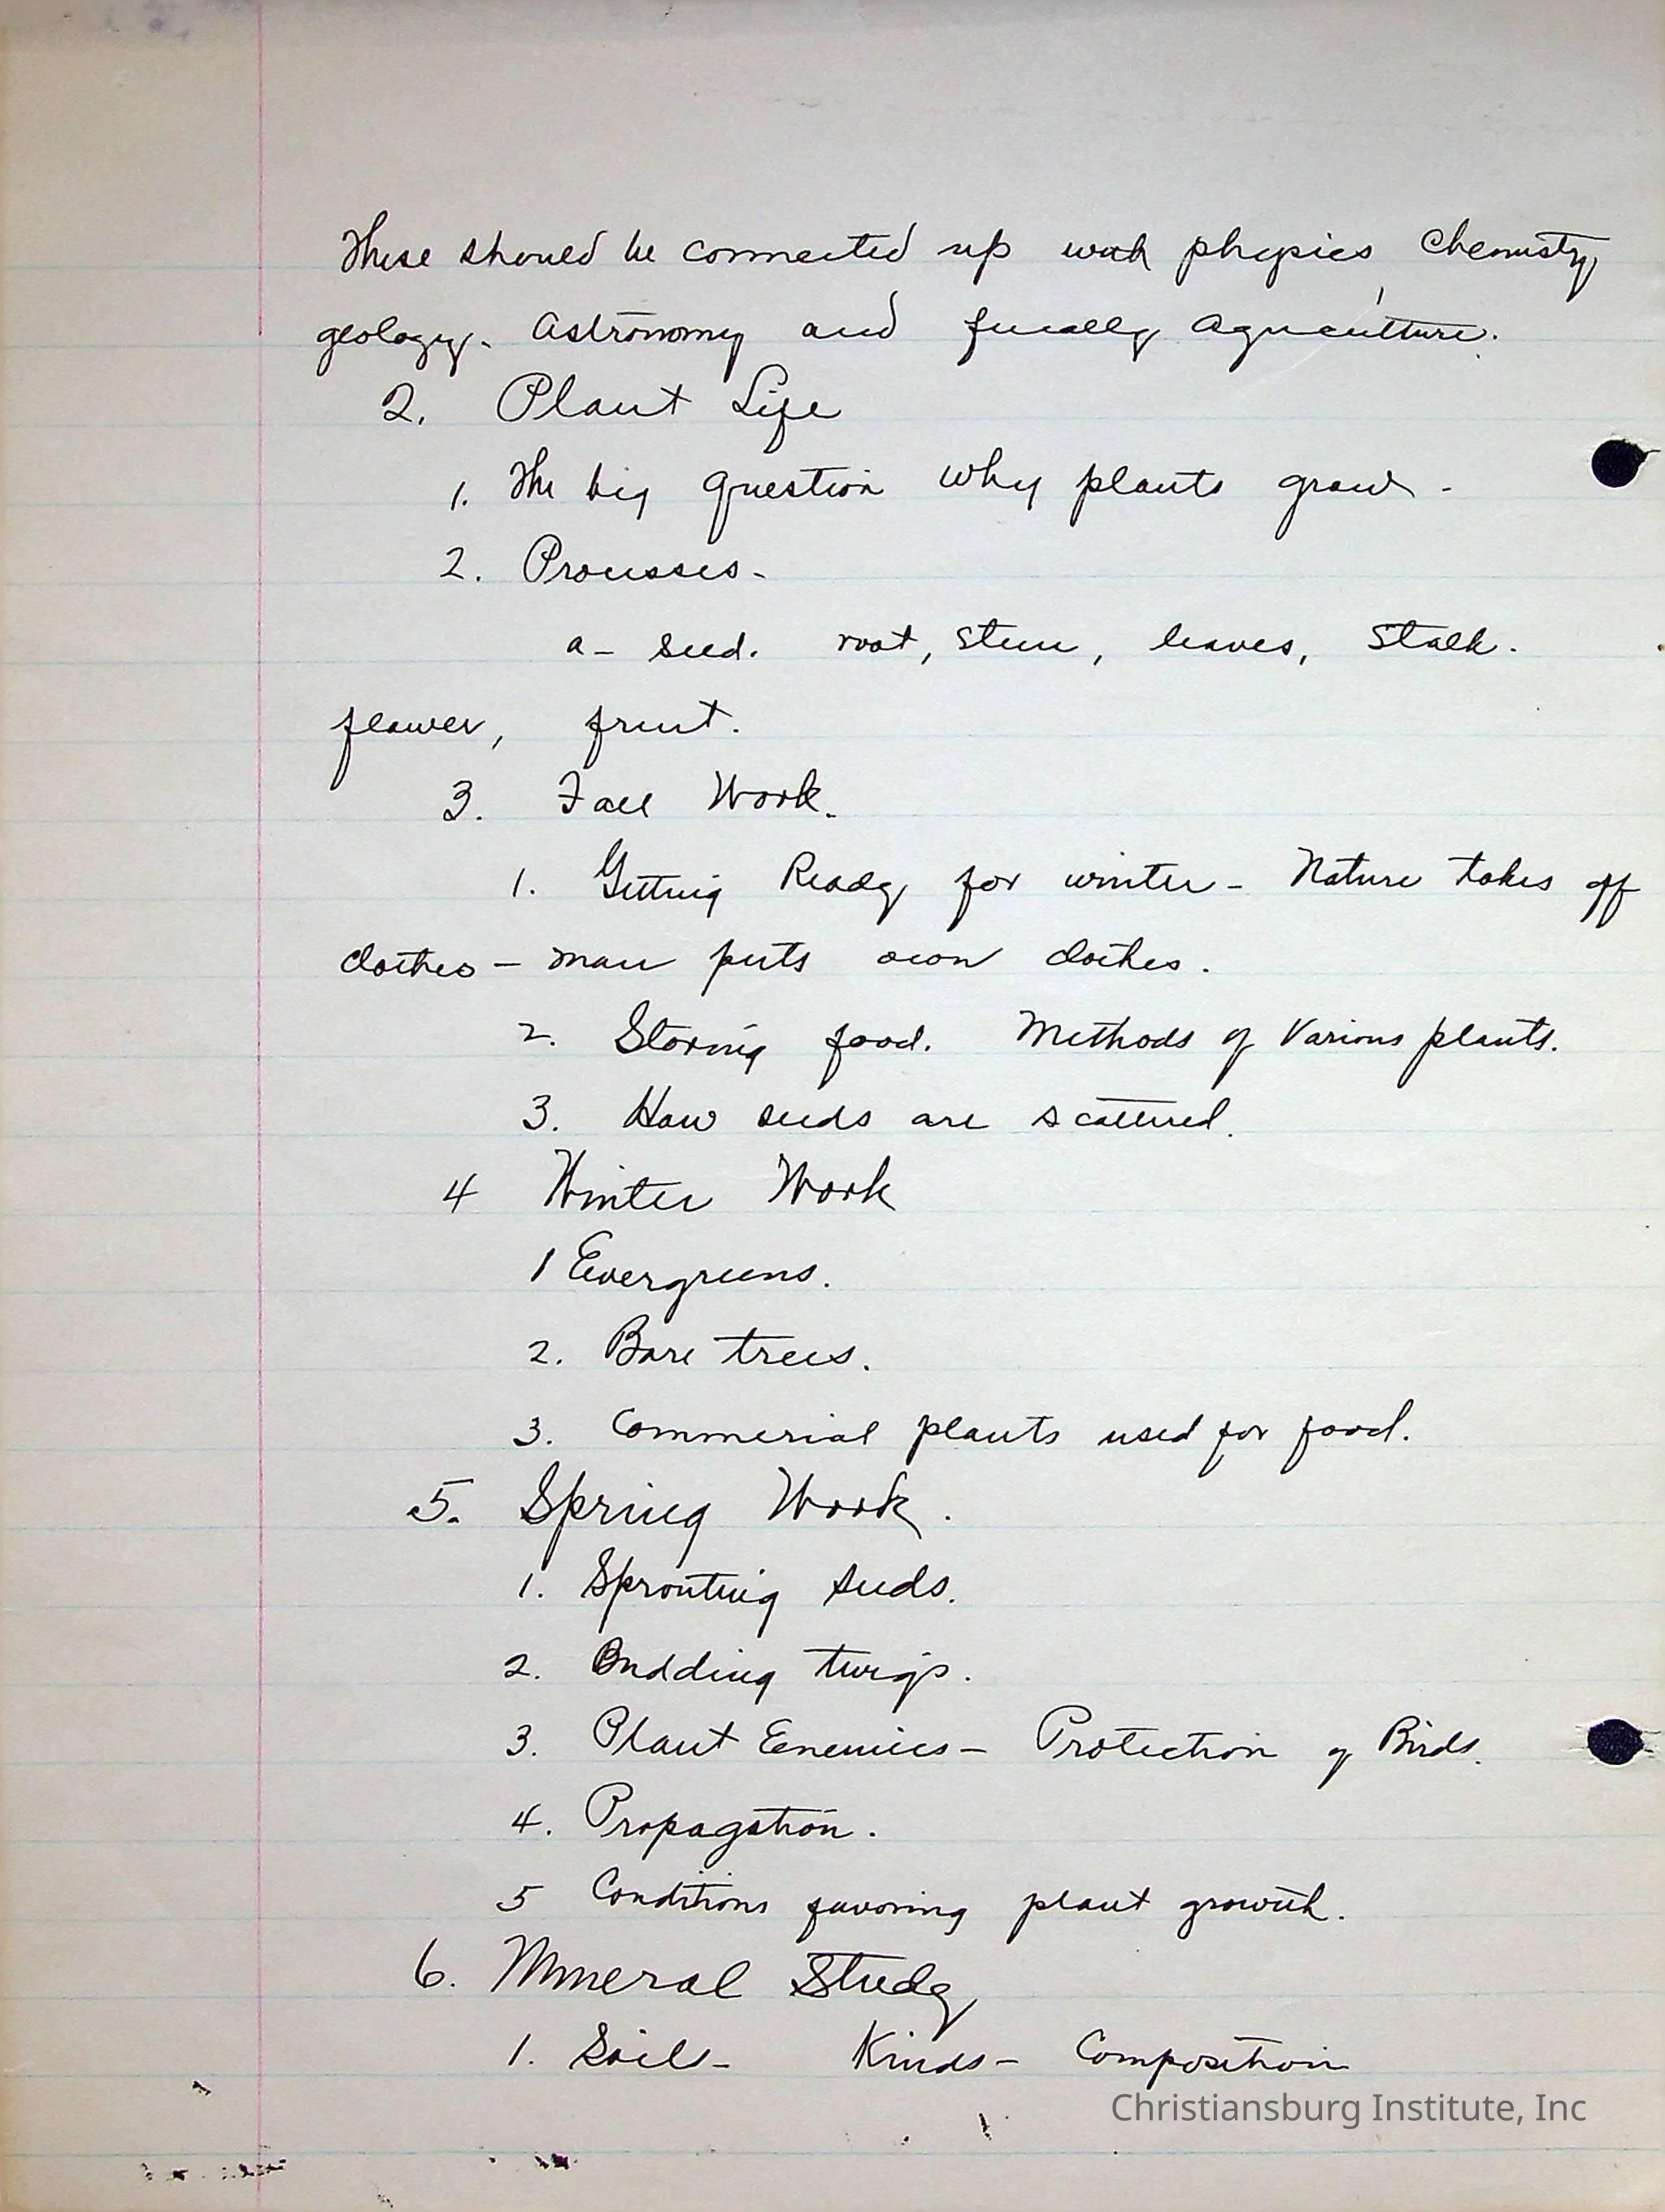 These should be connected up with physics, Chemisty,
geology. Astronomy and finally Agriculture.
2. Plant Life
1. The big question why plants grow -
2. Processes -
a - seed. root, stem, leaves, stalk.
flower, fruit.
3. Fall Work.
1. Getting Ready for winter - Nature takes off
clothes - man puts own clothes.
2. Storing food. Methods of various plants.
3. How seeds are scattered.
4 Winter Work
1 Evergreens.
2. Bare trees.
3. Commerial plants used for food.
5. Spring Work.
1. Sprouting seeds.
2. Budding twigs.
3. Plant Enemies - Protection of Birds.
4. Propagation.
5 Conditions favoring plant growth.
6. Mineral Study
1. Soils - Kinds - Composition
Christiansburg Institute, Inc